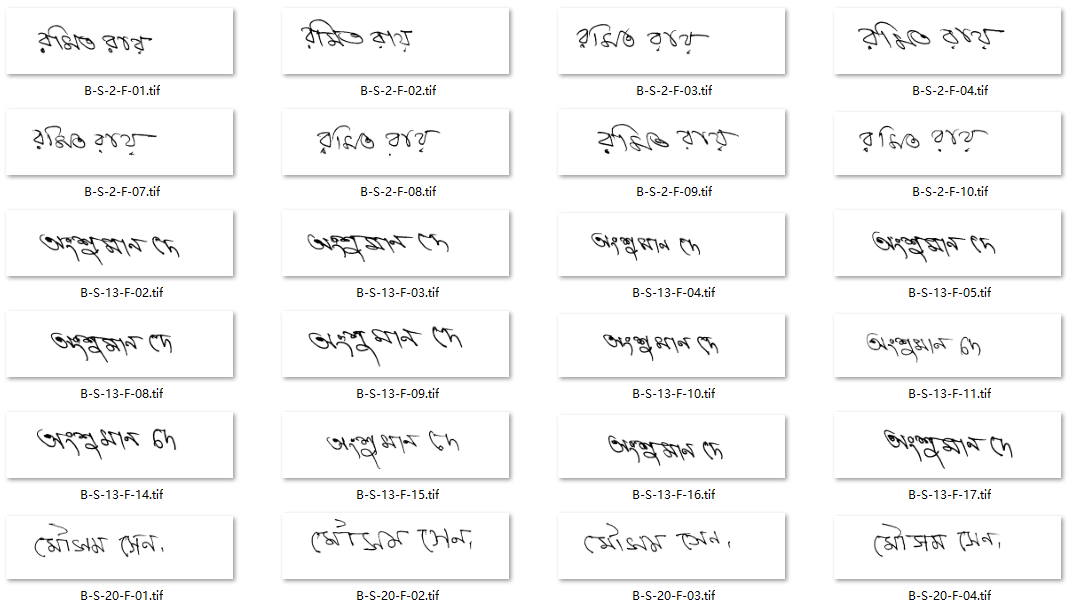 রমিত রায় রমিত রায় রমিত রায় রমিত রায়
B-S-2-F-01.tif B-S-2-F-02.tif B-S-2-F-03.tif B-S-2-F-04.tif
রমিত রায় রমিত রায় রমিত রায় রমিত রায়
B-S-2-F-07.tif B-S-2-F-08.tif B-S-2-F-09.tif B-S-2-F-10.tif
অংশুমান দে অংশুমান দে অংশুমান দে অংশুমান দে
B-S-13-F-02.tif B-S-13-F-03.tif B-S-13-F-04.tif B-S-13-F-05.tif
অংশুমান দে অংশুমান দে অংশুমান দে অংশুমান দে
B-S-13-F-08.tif B-S-13-F-09.tif B-S-13-F-10.tif B-S-13-F-11.tif
অংশুমান দে অংশুমান দে অংশুমান দে অংশুমান দে
B-S-13-F-14.tif B-S-13-F-15.tif B-S-13-F-16.tif B-S-13-F-17.tif
মৌসম সেন, মৌসম সেন, মৌসম সেন, মৌসম সেন,
B-S-20-F-01.tif B-S-20-F-02.tif B-S-20-F-03.tif B-S-20-F-04.tif